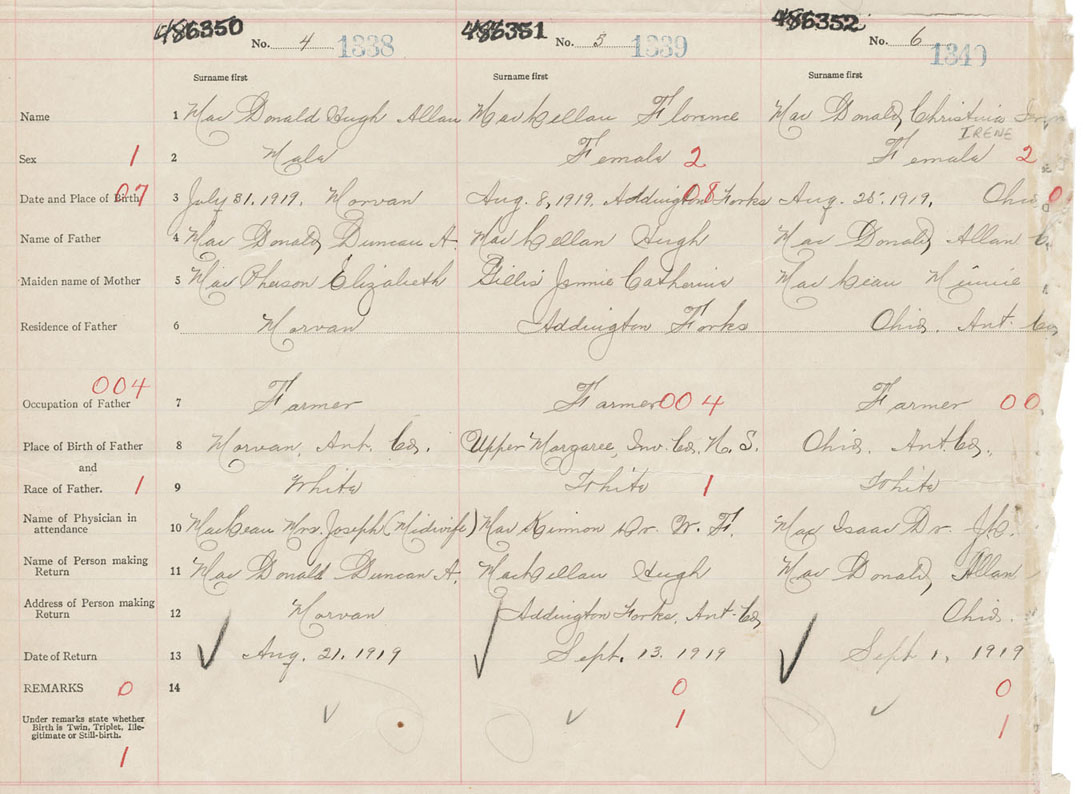 486350 486351 486352
No. 4 1338 No. 5 1339 No. 6 1340
Surname first Surname first Surname first
Name 1 Mac Donald Hugh Allan MacLellan Florence Mac Donald, Christina
IRENE
Sex 1 2 Male Female 2 Female 2
Date and Place of Birth 07 3 July 31, 1919. Morvan Aug. 8, 1919. Addington Forks 08 Aug. 25, 1919. Ohio 0
Name of Father 4 Mac Donald, Duncan A. MacLellan Hugh Mac Donald, Allan
Maiden name of Mother 5 MacPherson Elizabeth Gillis Jennie Catherine MacLean Minnie
Residence of Father 6 Morvan Addington Forks Ohio. Ant. Co.
004
Occupation of Father 7 Farmer Farmer 004 Farmer 00
Place of Birth of Father 8 Morvan, Ant. Co. Upper Margaree, Inv. Co. N. S. Ohio. Ant. Co.
and
Race of Father. 1 9 White White 1 White
Name of Physician in
attendance 10 MacLean Mrs. Joseph (Midwife) MacKinnon Dr. W. F. MacIsaac Dr. J.C.
Name of Person making
Return 11 Mac Donald Duncan A. MacLellan Hugh Mac Donald, Allan
Address of Person making
Return 12 Morvan Addington Forks, Ant. Co. Ohio.
Date of Return 13 Aug. 21, 1919 Sept. 13. 1919 Sept 1, 1919
REMARKS 0 14 0 0
Under remarks state whether
Birth is Twin, Triplet, Ille-
gitimate or Still-birth. 1 1
1